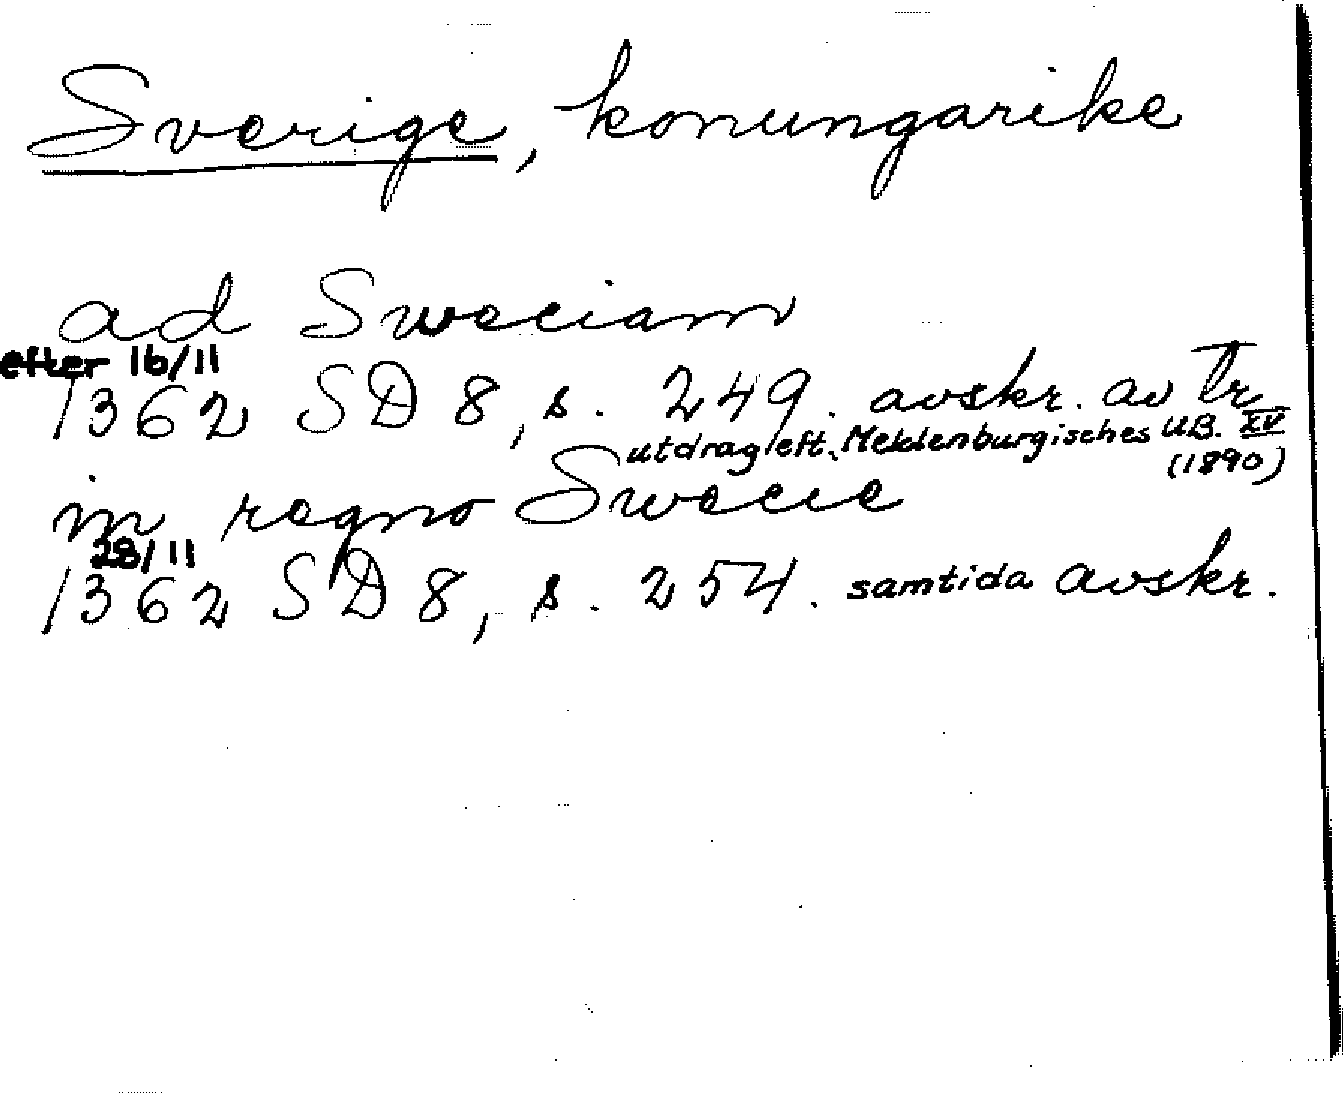 Sverige, konungarike
ad Sweciam
efter 16/11
1362 SD 8, s. 249. avskr. av Tr
utdrag eft. Meklenburgisches UB. XV
(1890)
in regno Swecie
28/11
1362 SD 8, s. 254. samtida avskr.